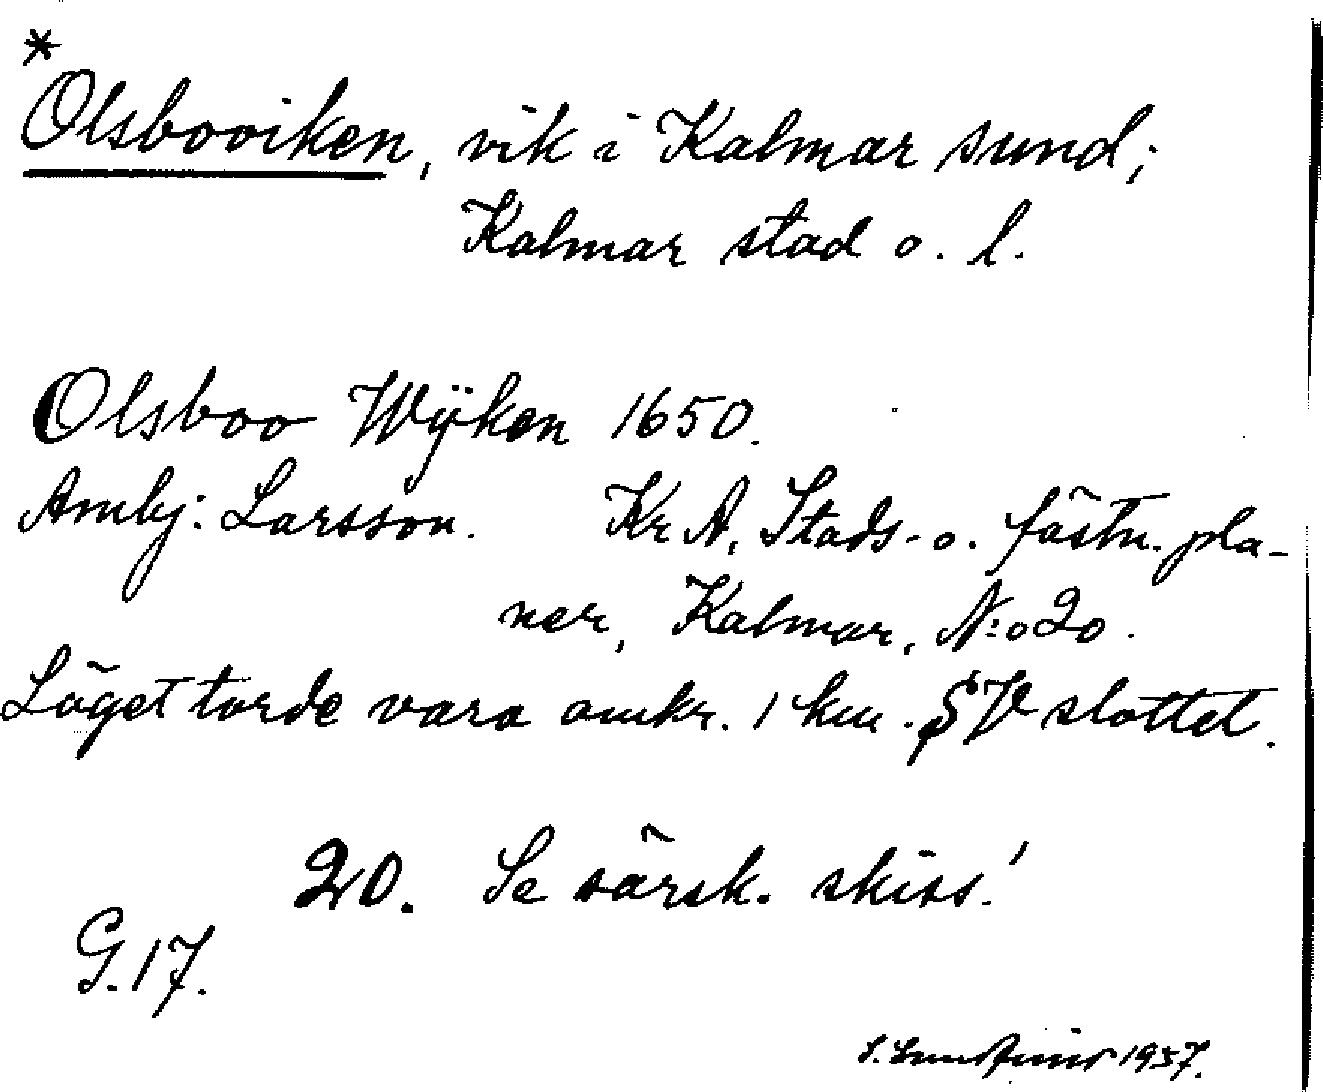 *
Olsboviken, vik i Kalmar sund;
Kalmar stad o. l.
Olsboo Wÿken 1650.
Ambj: Larsson. Kr A, Stads- o. fästn. pla-
ner, Kalmar, N:o 20.
Läget torde vara omkr. 1 km. SV slottet.
20. Se särsk. skiss!
G. 17.
1957.